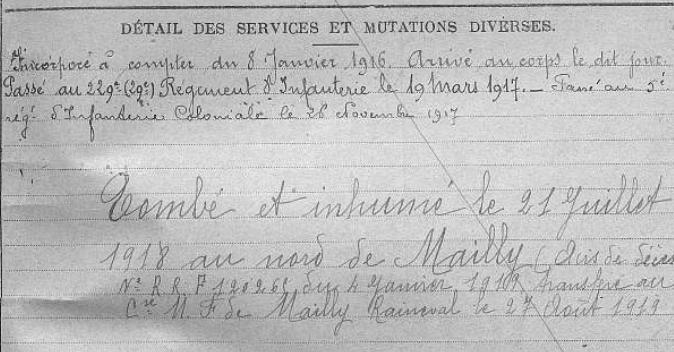 DÉTAIL DES SERVICES ET MUTATIONS DIVERSES.
Incorporé à compter du 8 Janvier 1916. Arrivé au corps le dit jour.
Passé au 229e (29e) Régiment d'Infanterie le 19 mars 1917. — Passé au 5e
rég. d'Infanterie Coloniale le 26 Novembre 1917
Tombé et inhumé le 21 Juillet
1918 au nord de Mailly (Avis de décès
No R R F 120265 du 4 Janvier 1919 transféré au
Cre M. F de Mailly Raineval le 27 Août 1919